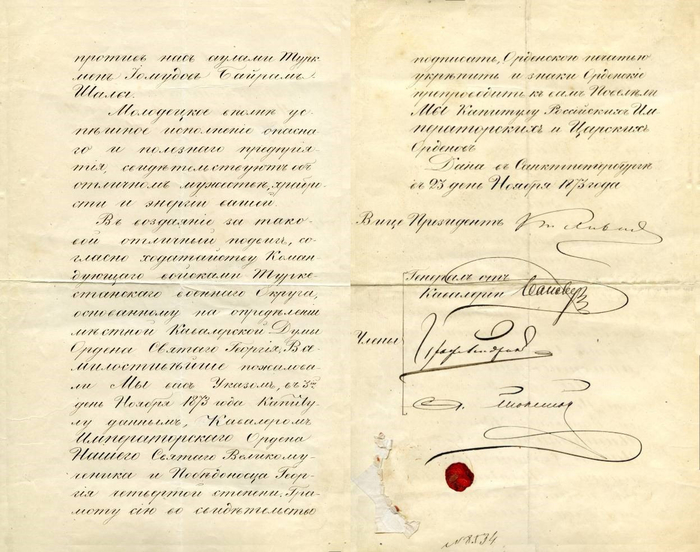 противъ насъ аулами Турк
менъ Iомудовъ Байрамъ
Шалы.
Молодецкое вполнѣ ус-
пѣшное исполненіе опасна
го и полезнаго предпрія-
тія, свидѣтельствуютъ объ
отличномъ мужествѣ, храбро
сти и энергіи вашей.
Въ воздаяніе за тако-
вой отличный подвигъ, со-
гласно ходатайству Коман
дующаго войсками Турке
станскаго военнаго Округа,
основанному на опредѣленіи
мѣстной Кавалерской Думы
Ордена Святаго Георгія, Все
милостивѣйше пожалова
ли Мы васъ Указомъ, въ
день Ноября 1873 года Капиту-
лу даннымъ, Кавалеромъ
Императорскаго Ордена
Нашего Святаго Великому-
ченика и Побѣдоносца Геор-
гія четвертой степени. Гра
моту сію во свидѣтельство
подписать, Орденскою печатью
укрѣпить и знаки Орденскіе
препроводить къ вамъ Повелѣли
Мы Капитулу Россійскихъ Им
ператорскихъ и Царскихъ
Орденовъ.
Дана въ Санктпетербургѣ
въ 23 день Ноября 1873 года
Вице Президентъ
Генералъ отъ
Кавалеріи
Члены
№ 8534